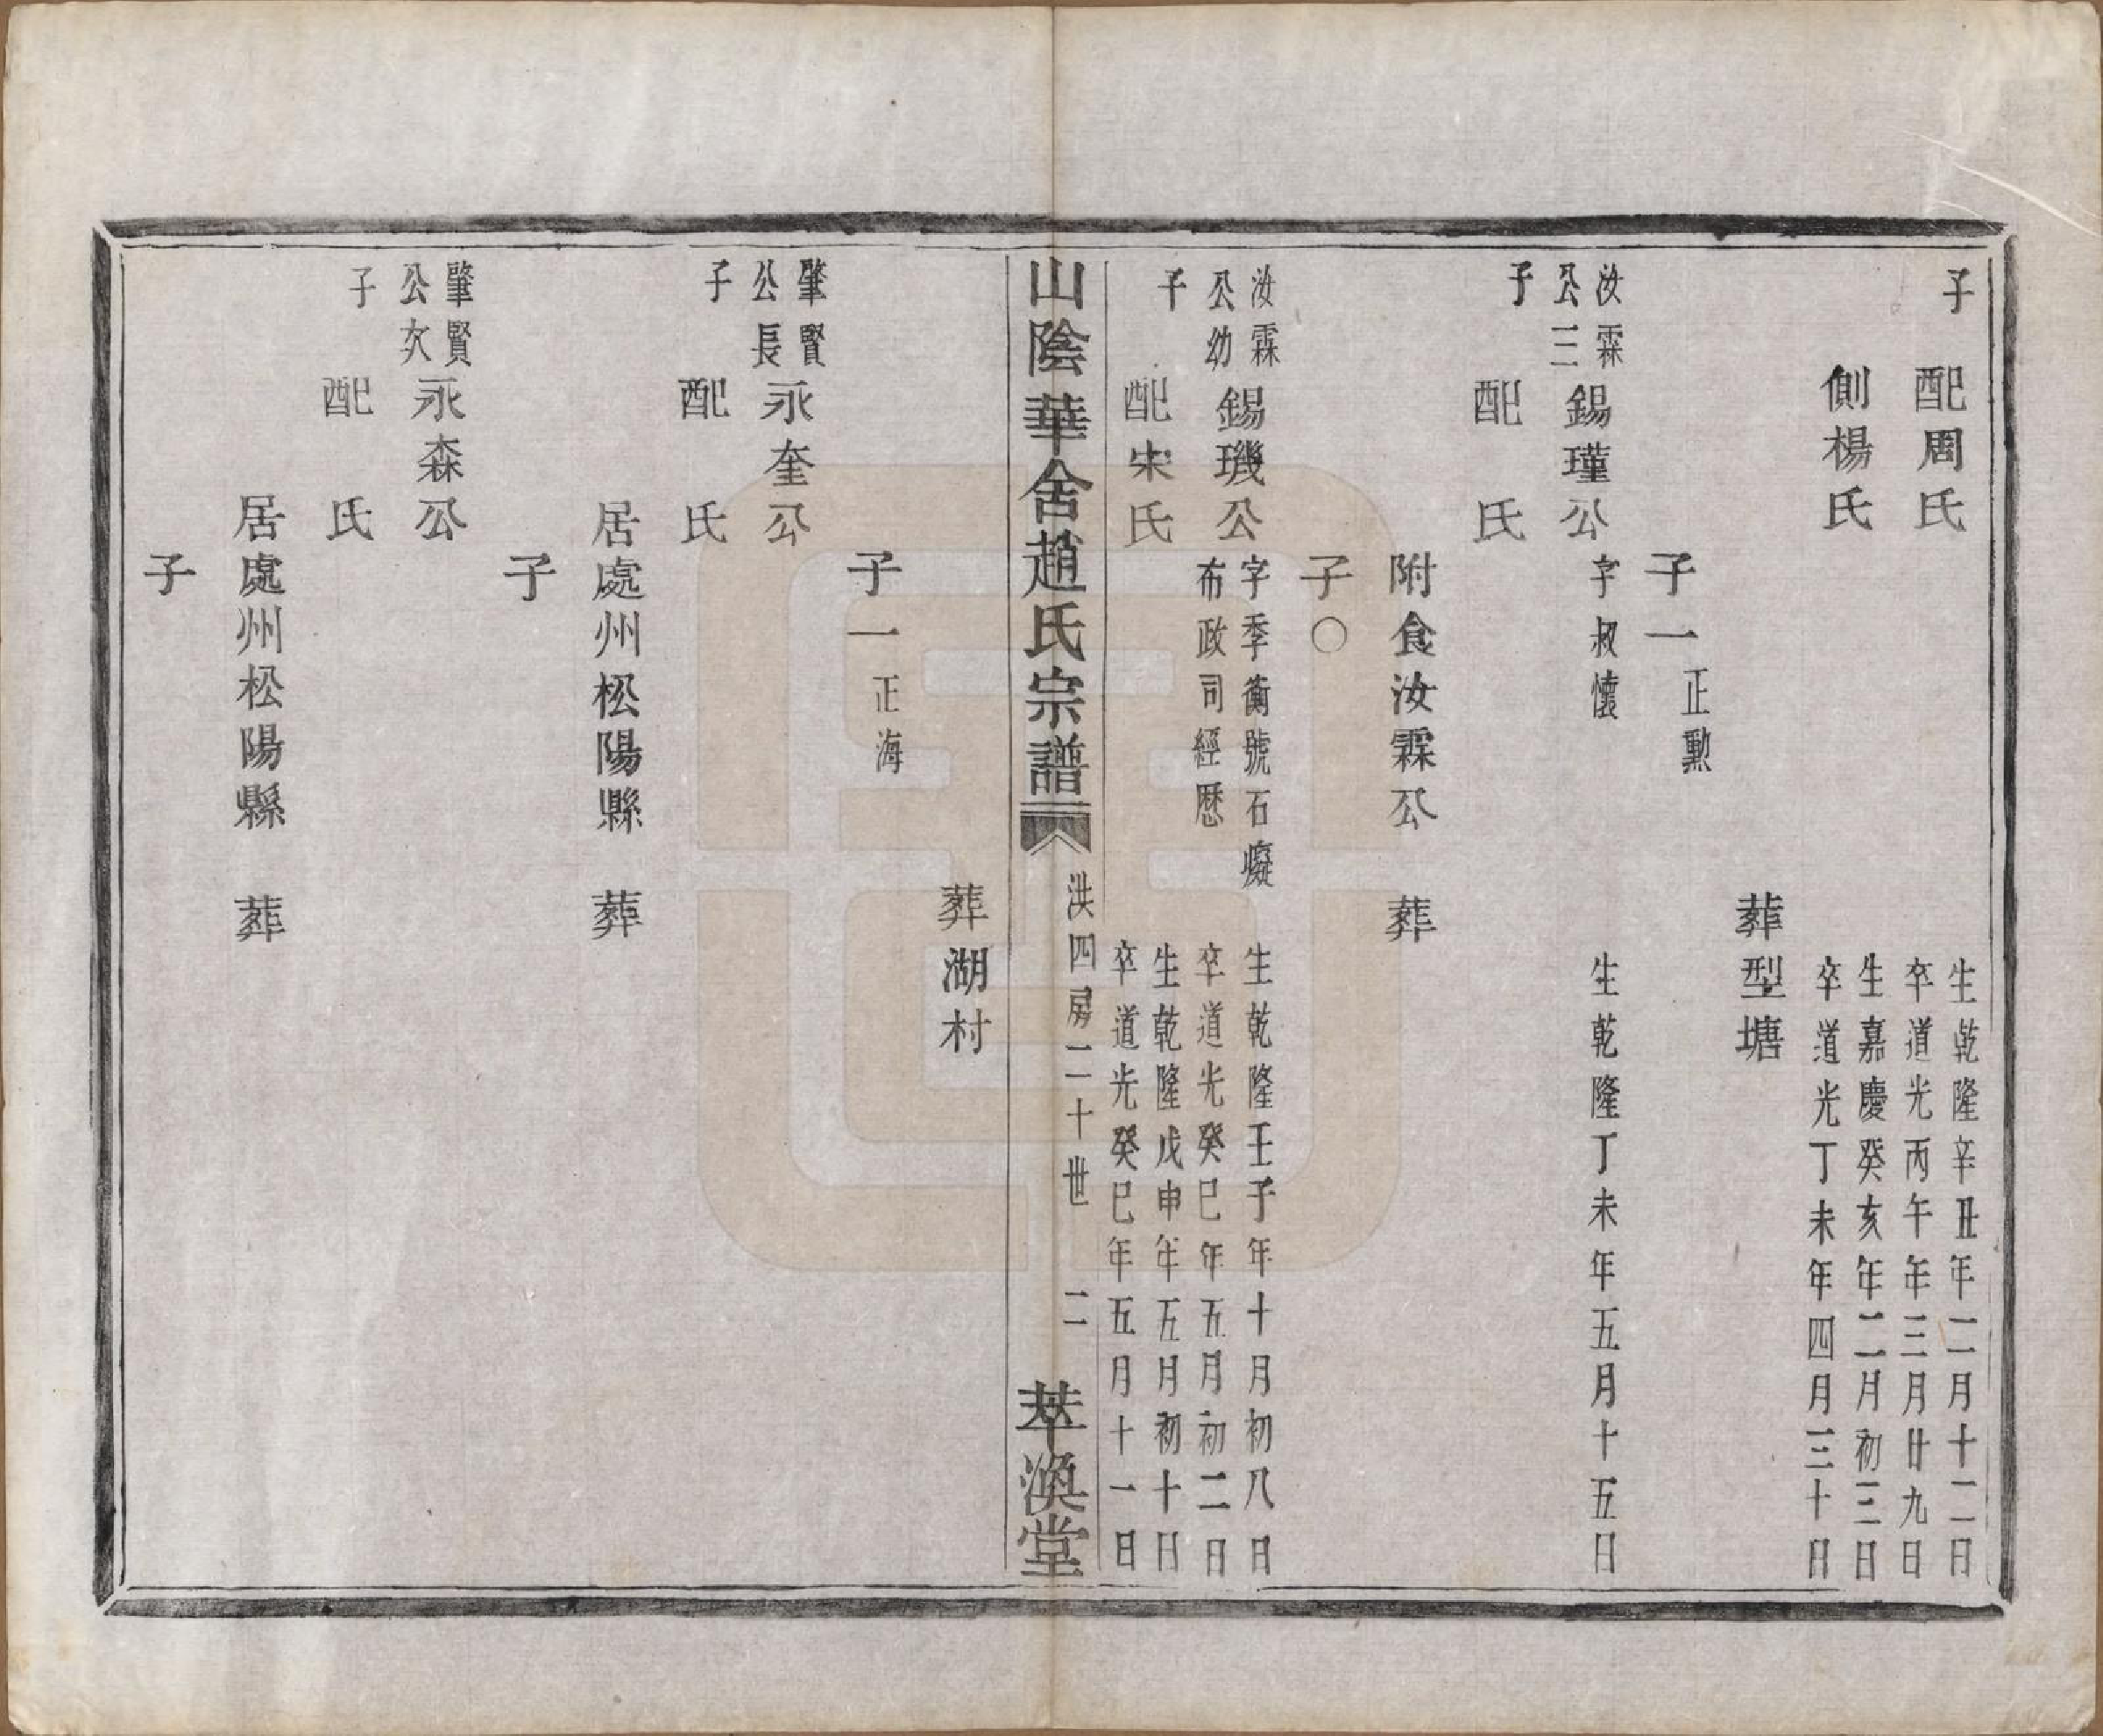 子　配周氏　生乾隆辛丑年二月十二日
卒道光丙午年三月廿九日
側楊氏　生嘉慶癸亥年二月初三日
卒道光丁未年四月三十日
葬型塘
子一　正勳
汝霖
公三
子
錫瑾公　字叔懷　生乾隆丁未年五月十五日
配　氏
附食汝霖公　葬
子〇
汝霖
公幼
子
錫璣公　字季衡號石癡　生乾隆壬子年十月初八日
布政司經歷　卒道光癸巳年五月初二日
配宋氏　生乾隆戊申年五月初十日
卒道光癸巳年五月十一日
山陰華舍趙氏宗譜　洪四房二十世　二　萃渙堂
葬湖村
子一　正海
肇賢
公長
子
永奎公
配　氏
居處州松陽縣　葬
子
肇賢
公次
子
永森公
配　氏
居處州松陽縣　葬
子